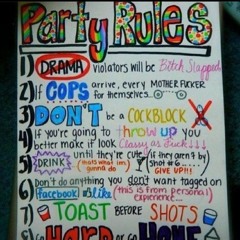 Party Rules
1) DRAMA violators will be Bitch Slapped
2) If COPS arrive, every MOTHER FUCKER
for themselves...
3) DON'T be a COCKBLOCK
4) If you're going to throw up you
better make it look Classy as Fuck!!!
5) DRINK until they're cute (if they aren't by
(thats what im gonna do) shot #6 ....
GIVE UP!!!
6) Don't do anything you don't want tagged on
facebook #5 like (this is from personal
experience...
7) TOAST BEFORE SHOTS
HARD or go HOME